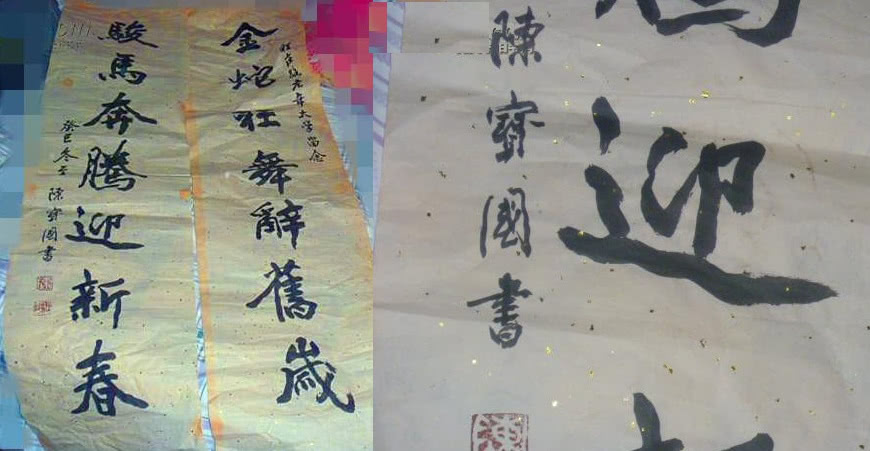 金蛇狂舞辭舊歲
老年大学留念
駿馬奔騰迎新春
癸巳冬
陳寳國書
迎
陳寳國書